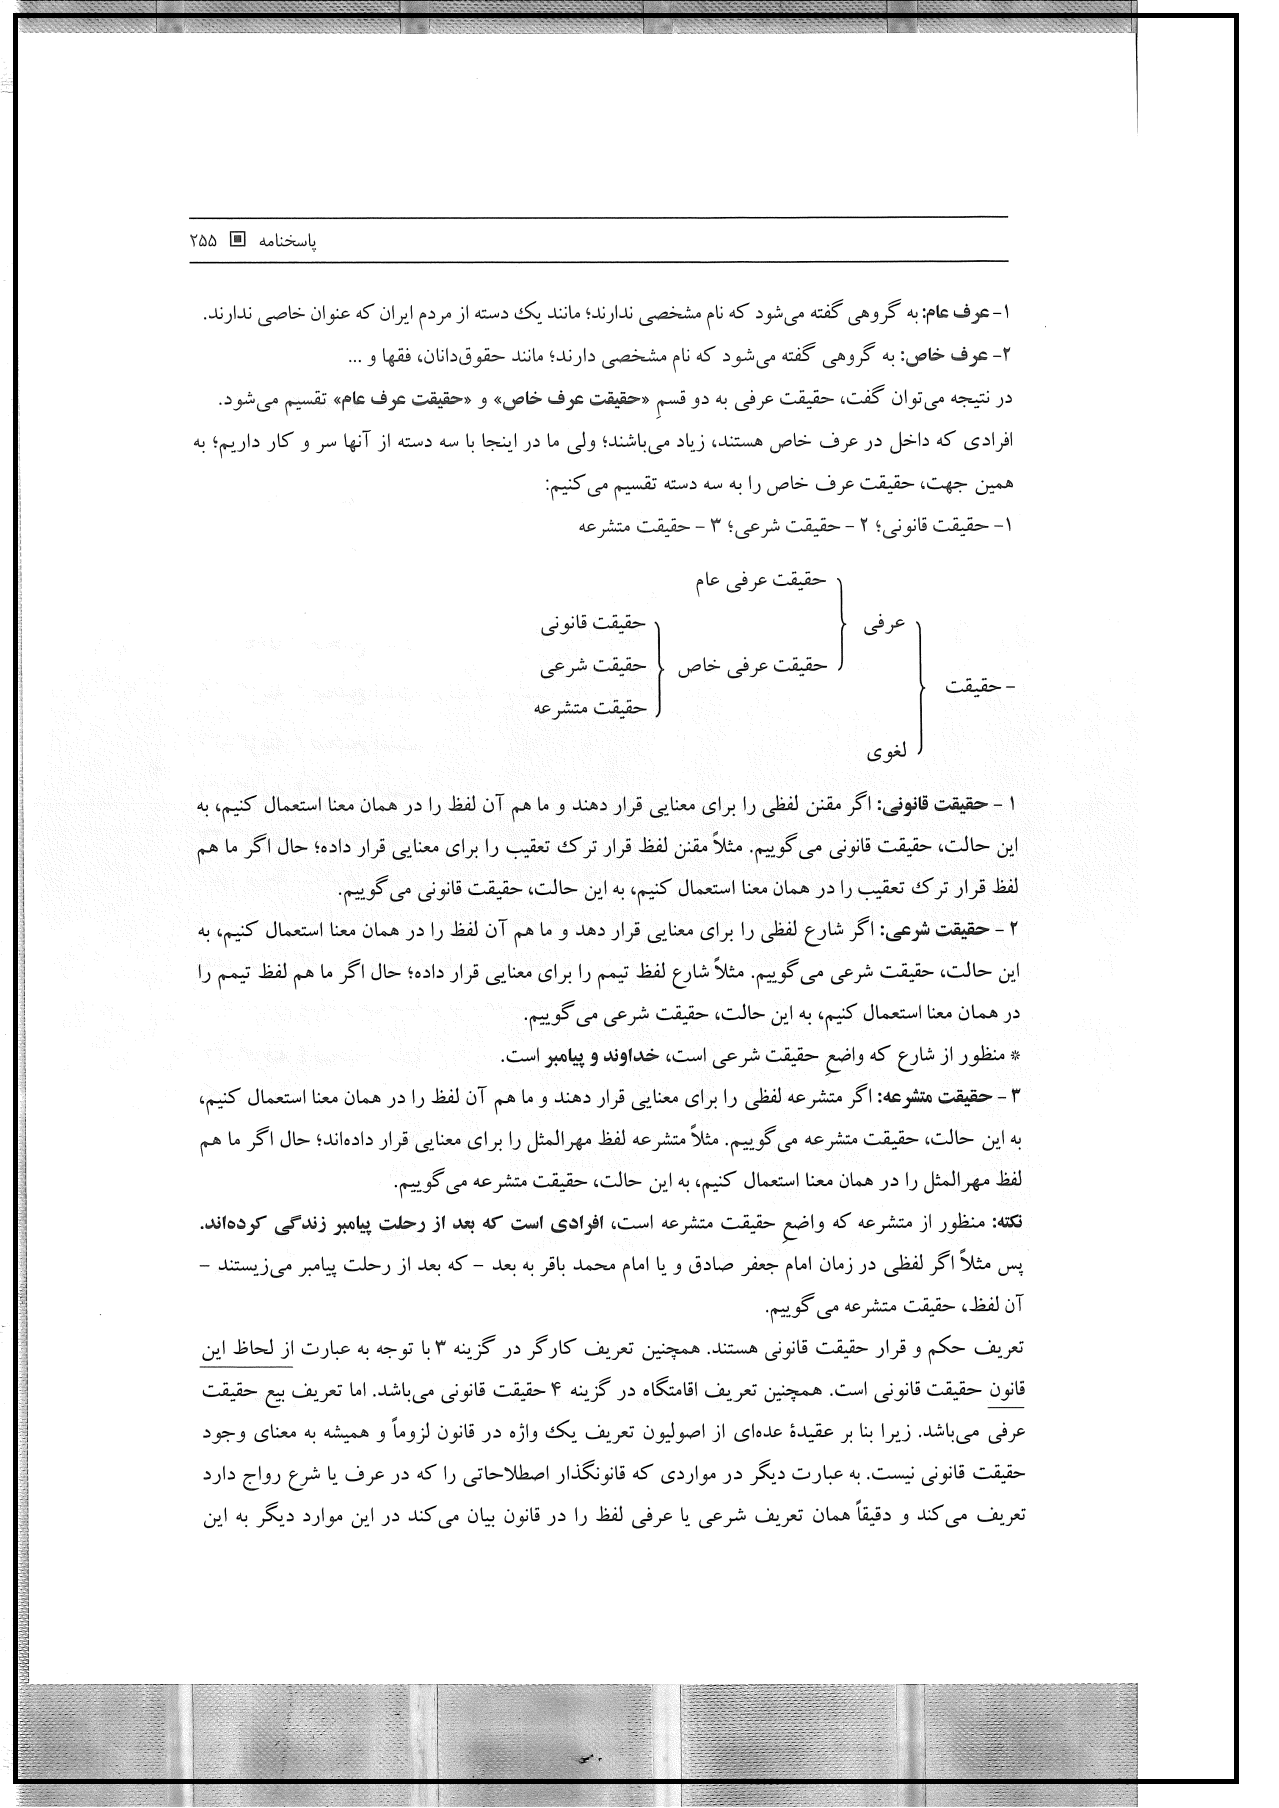 پاسخنامه ▣ ۲۵۵
۱- عرف عام: به گروهی گفته می‌شود که نام مشخصی ندارند؛ مانند یک دسته از مردم ایران که عنوان خاصی ندارند.
۲- عرف خاص: به گروهی گفته می‌شود که نام مشخصی دارند؛ مانند حقوق‌دانان، فقها و ...
در نتیجه می‌توان گفت، حقیقت عرفی به دو قسمِ «حقیقت عرف خاص» و «حقیقت عرف عام» تقسیم می‌شود.
افرادی که داخل در عرف خاص هستند، زیاد می‌باشند؛ ولی ما در اینجا با سه دسته از آنها سر و کار داریم؛ به
همین جهت، حقیقت عرف خاص را به سه دسته تقسیم می‌کنیم:
۱- حقیقت قانونی؛ ۲ - حقیقت شرعی؛ ۳ - حقیقت متشرعه
حقیقت عرفی عام
عرفی
حقیقت قانونی
حقیقت عرفی خاص
حقیقت شرعی
- حقیقت
حقیقت متشرعه
لغوی
۱ - حقیقت قانونی: اگر مقنن لفظی را برای معنایی قرار دهند و ما هم آن لفظ را در همان معنا استعمال کنیم، به
این حالت، حقیقت قانونی می‌گوییم. مثلاً مقنن لفظ قرار ترک تعقیب را برای معنایی قرار داده؛ حال اگر ما هم
لفظ قرار ترک تعقیب را در همان معنا استعمال کنیم، به این حالت، حقیقت قانونی می‌گوییم.
۲ - حقیقت شرعی: اگر شارع لفظی را برای معنایی قرار دهد و ما هم آن لفظ را در همان معنا استعمال کنیم، به
این حالت، حقیقت شرعی می‌گوییم. مثلاً شارع لفظ تیمم را برای معنایی قرار داده؛ حال اگر ما هم لفظ تیمم را
در همان معنا استعمال کنیم، به این حالت، حقیقت شرعی می‌گوییم.
* منظور از شارع که واضعِ حقیقت شرعی است، خداوند و پیامبر است.
۳ - حقیقت متشرعه: اگر متشرعه لفظی را برای معنایی قرار دهند و ما هم آن لفظ را در همان معنا استعمال کنیم،
به این حالت، حقیقت متشرعه می‌گوییم. مثلاً متشرعه لفظ مهرالمثل را برای معنایی قرار داده‌اند؛ حال اگر ما هم
لفظ مهرالمثل را در همان معنا استعمال کنیم، به این حالت، حقیقت متشرعه می‌گوییم.
نکته: منظور از متشرعه که واضعِ حقیقت متشرعه است، افرادی است که بعد از رحلت پیامبر زندگی کرده‌اند.
پس مثلاً اگر لفظی در زمان امام جعفر صادق و یا امام محمد باقر به بعد - که بعد از رحلت پیامبر می‌زیستند -
آن لفظ، حقیقت متشرعه می‌گوییم.
تعریف حکم و قرار حقیقت قانونی هستند. همچنین تعریف کارگر در گزینه ۳ با توجه به عبارت از لحاظ این
قانون حقیقت قانونی است. همچنین تعریف اقامتگاه در گزینه ۴ حقیقت قانونی می‌باشد. اما تعریف بیع حقیقت
عرفی می‌باشد. زیرا بنا بر عقیدهٔ عده‌ای از اصولیون تعریف یک واژه در قانون لزوماً و همیشه به معنای وجود
حقیقت قانونی نیست. به عبارت دیگر در مواردی که قانونگذار اصطلاحاتی را که در عرف یا شرع رواج دارد
تعریف می‌کند و دقیقاً همان تعریف شرعی یا عرفی لفظ را در قانون بیان می‌کند در این موارد دیگر به این